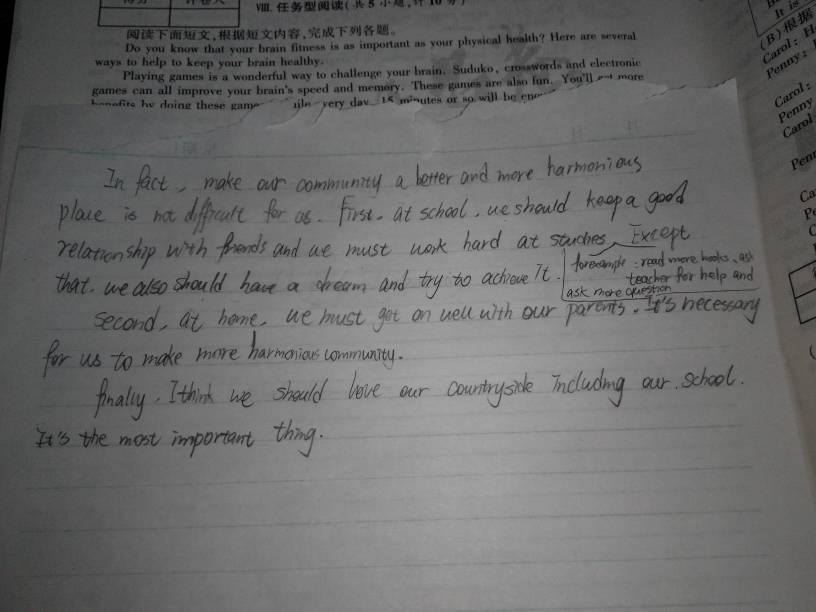 得分 评卷人
VIII. 任务型阅读(共5小题,计10分)
阅读下面短文,根据短文内容,完成下列各题。
Do you know that your brain fitness is as important as your physical health? Here are several
ways to help to keep your brain healthy.
Playing games is a wonderful way to challenge your brain. Suduko, crosswords and electronic
games can all improve your brain's speed and memory. These games are also fun. You'll get more
benefits by doing these game very day. 15 minutes or so will be
In fact, make our community a better and more harmonious
place is not difficult for us. First, at school, we should keep a good
relationship with friends and we must work hard at studies, Except
for example: read more books, ask
teacher for help and
ask more question
that, we also should have a dream and try to achieve it.
second, at home, we must get on well with our parents. It's necessary
for us to make more harmonious community.
finally, I think we should love our countryside including our school.
It's the most important thing.
It is
(B)根据
Carol: H
Penny:
Carol:
Penny
Carol
Penn
Ca
Pe
C